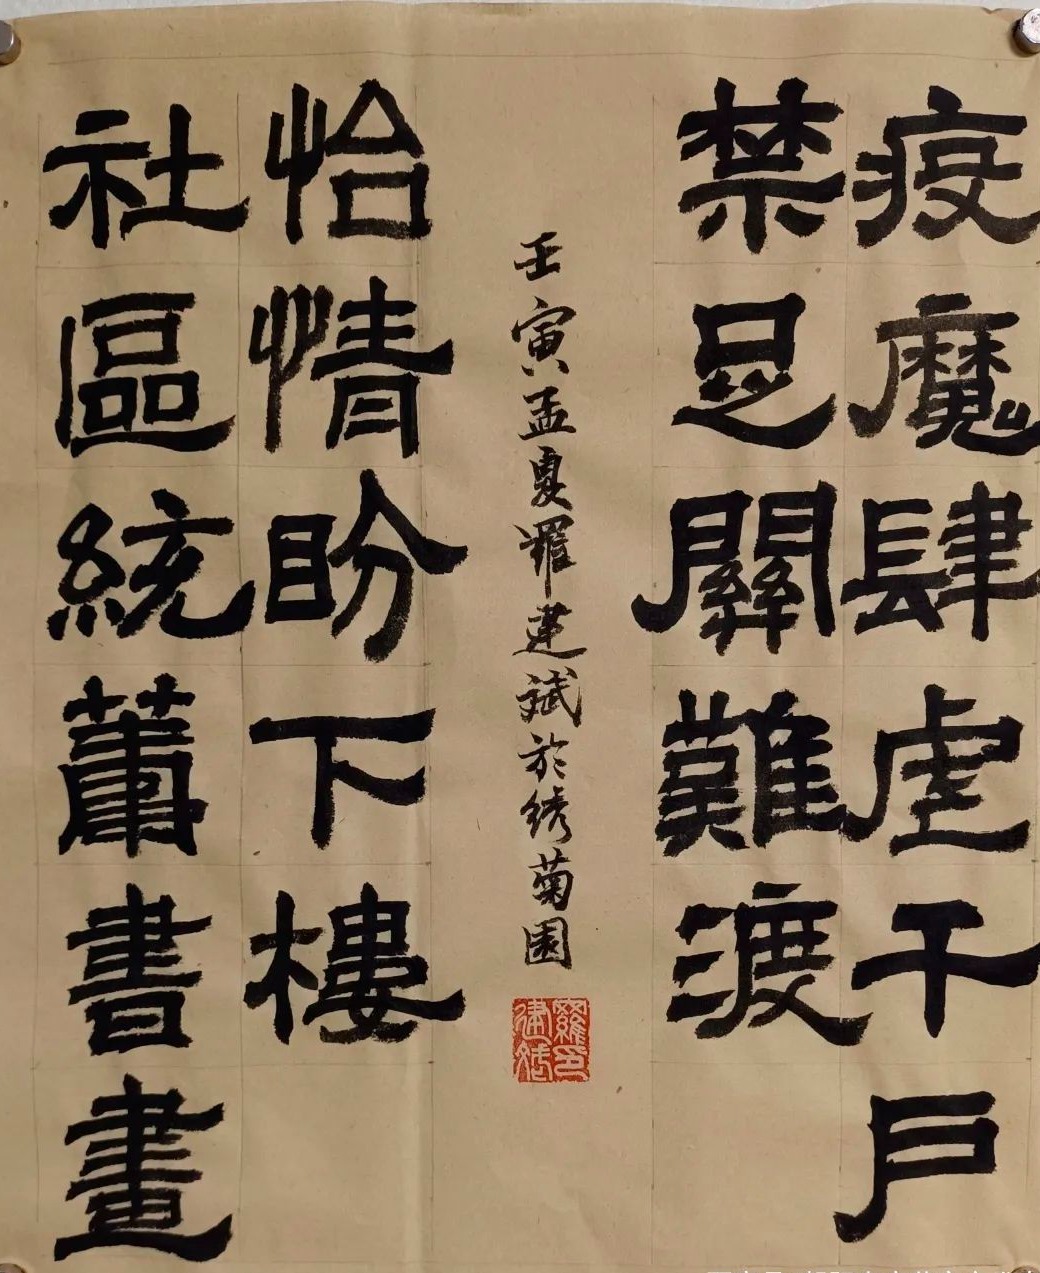 疫魔肆虐千戶
禁足關難渡
社區統蕭書畫
怡情盼下樓
壬寅孟夏羅建斌於绣菊園
羅印建斌